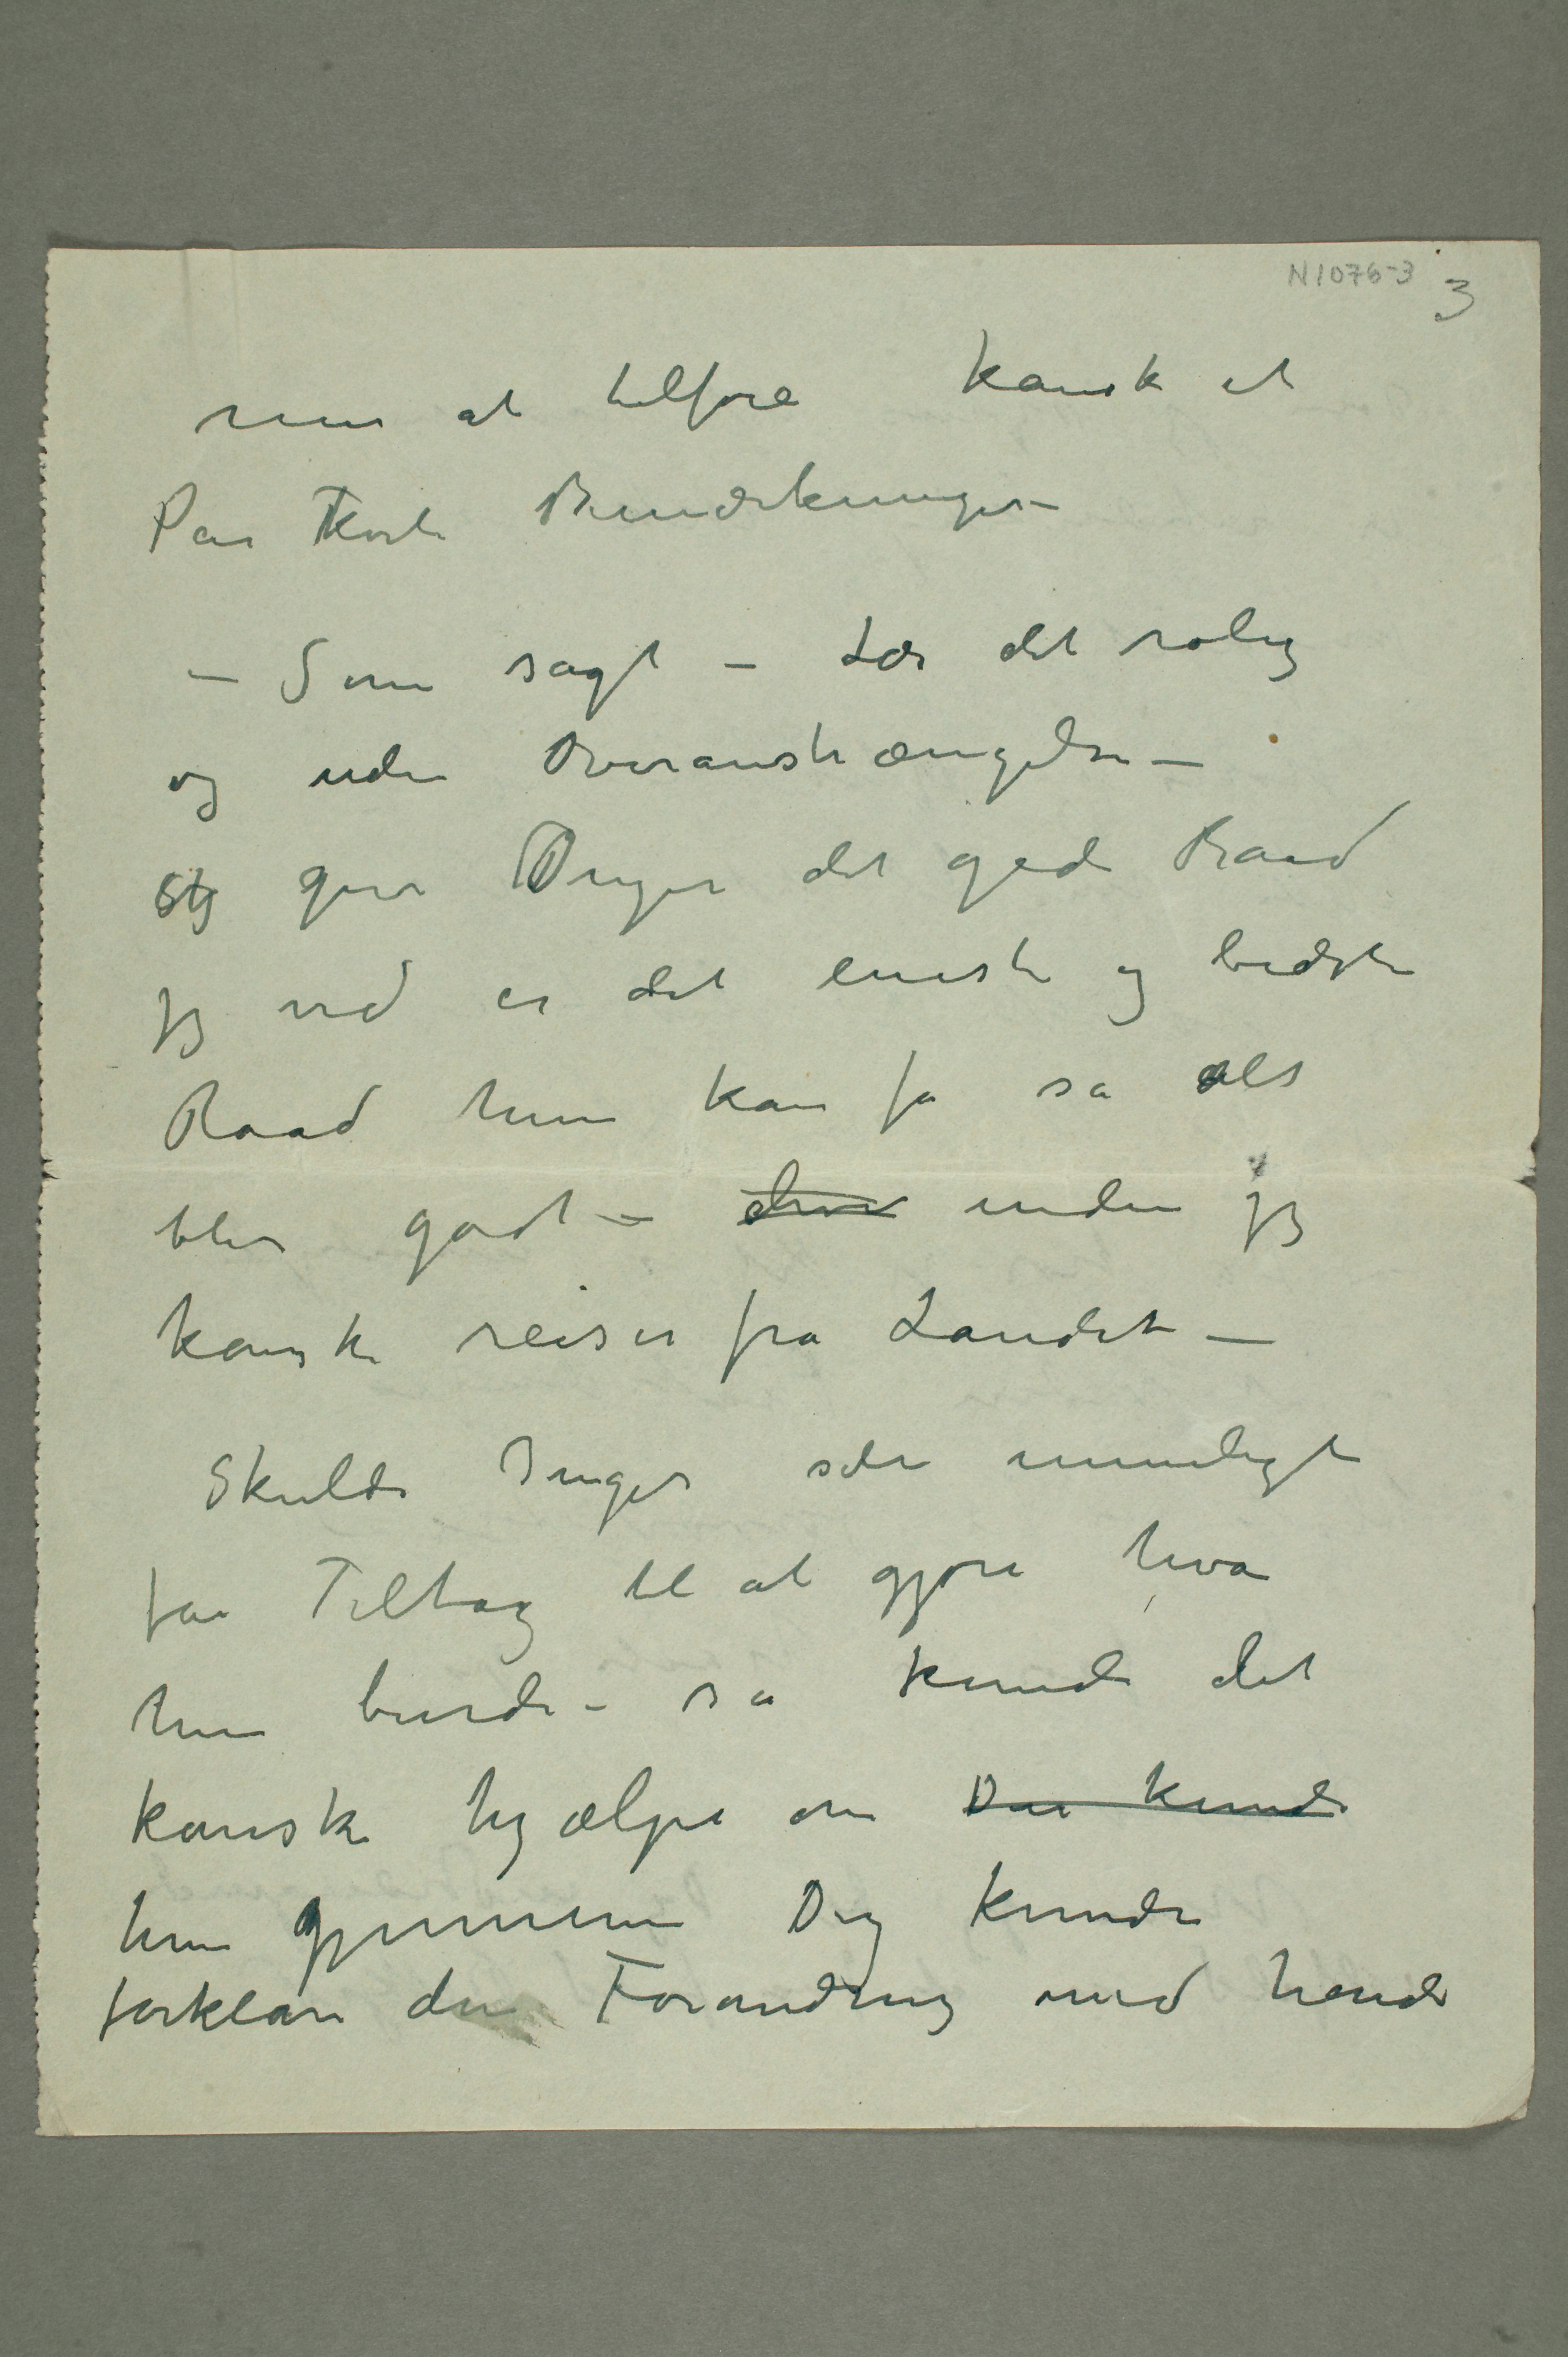 N1076-3 3
mer at tilføre kanske et
Par korte Bemærkninger –
– Som sagt – Læs det rolig
og uden Overanstrængelse –
og giv Inger det gode Raad
jeg ved er det eneste og bedste
Raad hun kan få så alt
blir godt – inden jeg
kanske reiser fra Landet –
Skulde Inger selv umuligt
faa Tiltag til at gjøre hva
hun burde – så kunde det
kanske hjælpe om Du kunde
hun gjennem Dig kunde
forklare den Forandring med hende